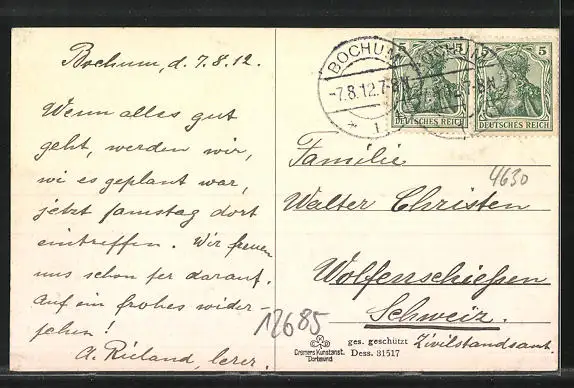 Bochum, d. 7.8.12.
Wenn alles gut
geht, werden wir,
wi es geplant war,
jetzt samstag dort
eintreffen. Wir freuen
uns schon ser darauf.
Auf ein frohes wider
sehen!
A. Rieland, lerer.
12685
BOCHUM
-7.8.12.7-8 N
* 1
BOCHUM
5 5
DEUTSCHES REICH
5
DEUTSCHES REICH
Familie
4630
Walter Christen
Wolfenschießen
Schweiz.
Zivilstandsamt.
Cramers Kunstanst.
Dortmund
ges. geschützt
Dess. 31517